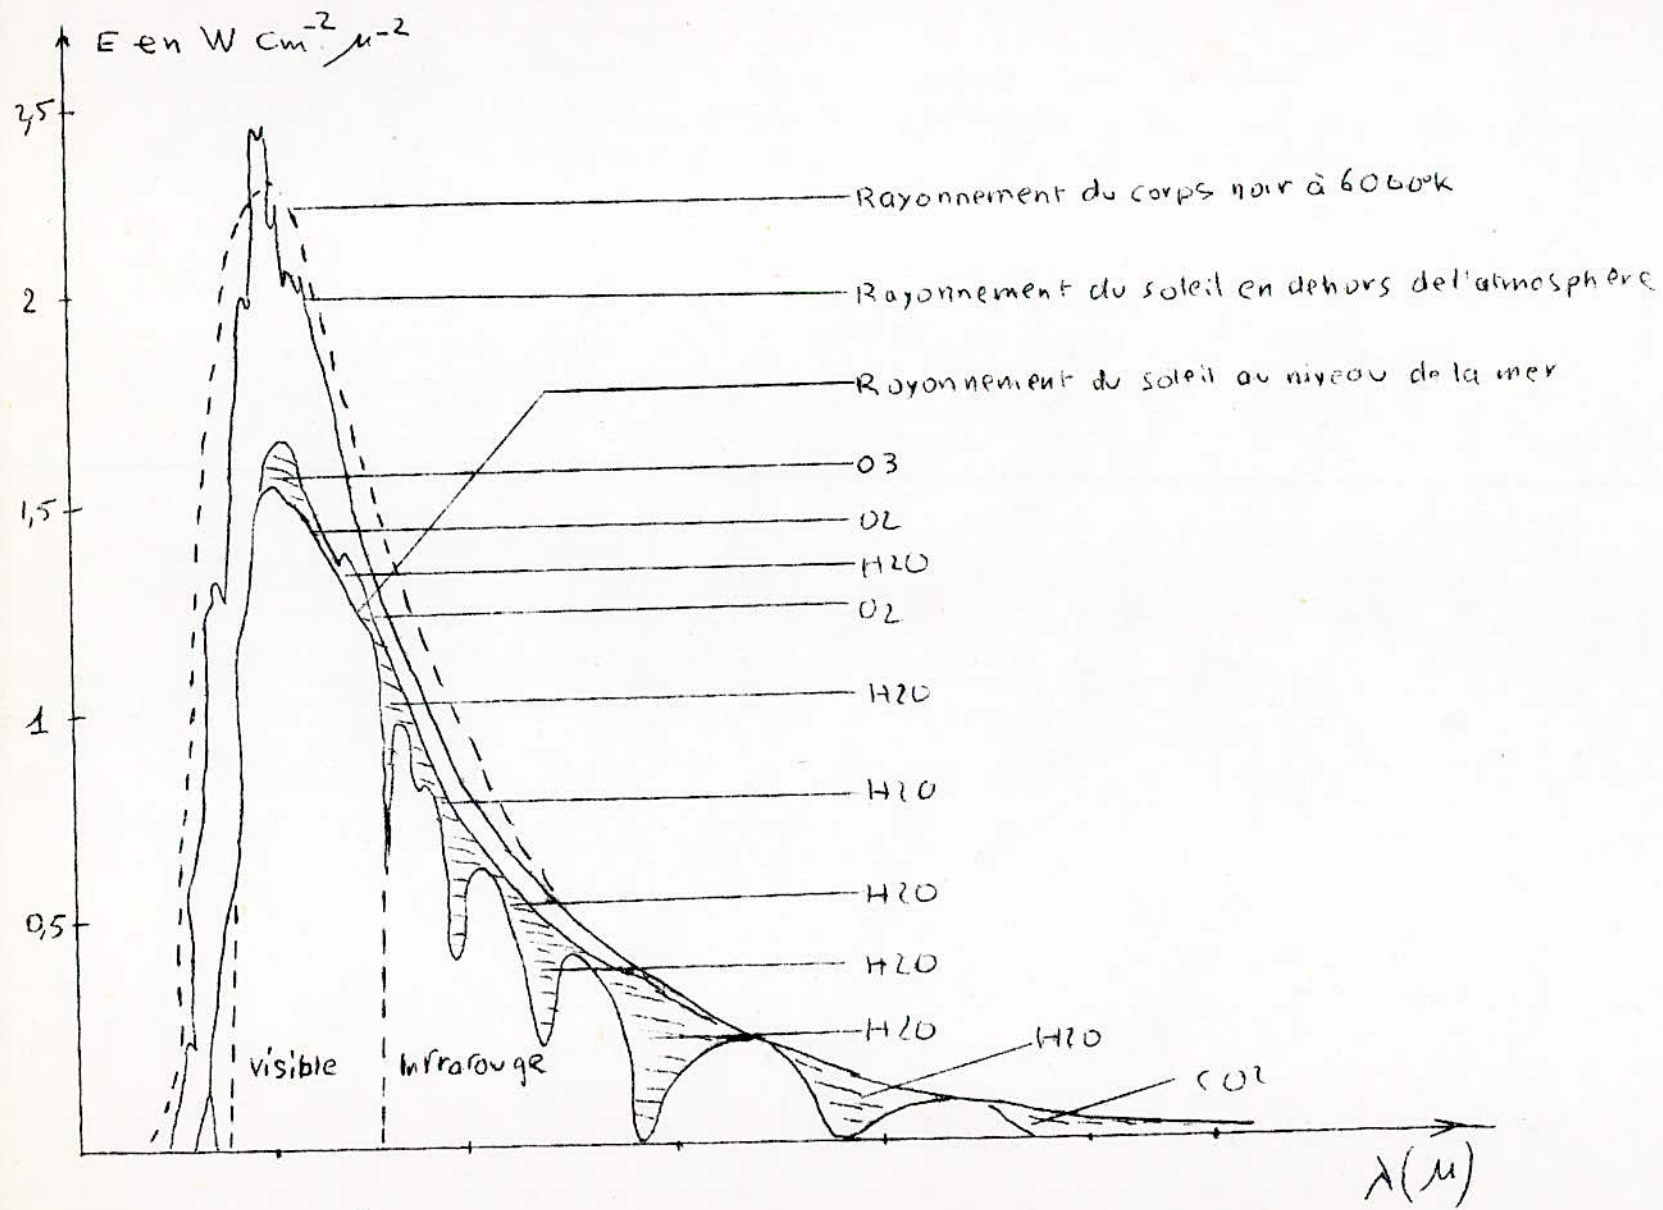 E en W cm⁻² μ⁻²
2,5
Rayonnement du corps noir à 6000°K
2
Rayonnement du soleil en dehors de l'atmosphère
Rayonnement du soleil au niveau de la mer
O3
1,5
O2
H2O
O2
H2O
1
H2O
H2O
0,5
H2O
H2O
H2O
visible
Infrarouge
CO2
λ(μ)